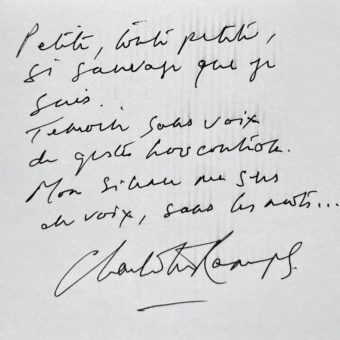 Petite, toute petite,
si sauvage que je
suis.
Témoin sans voix
de gestes hors contrôle.
Mon silence me sert
de voix, sans les mots...
Charlotte Rampling